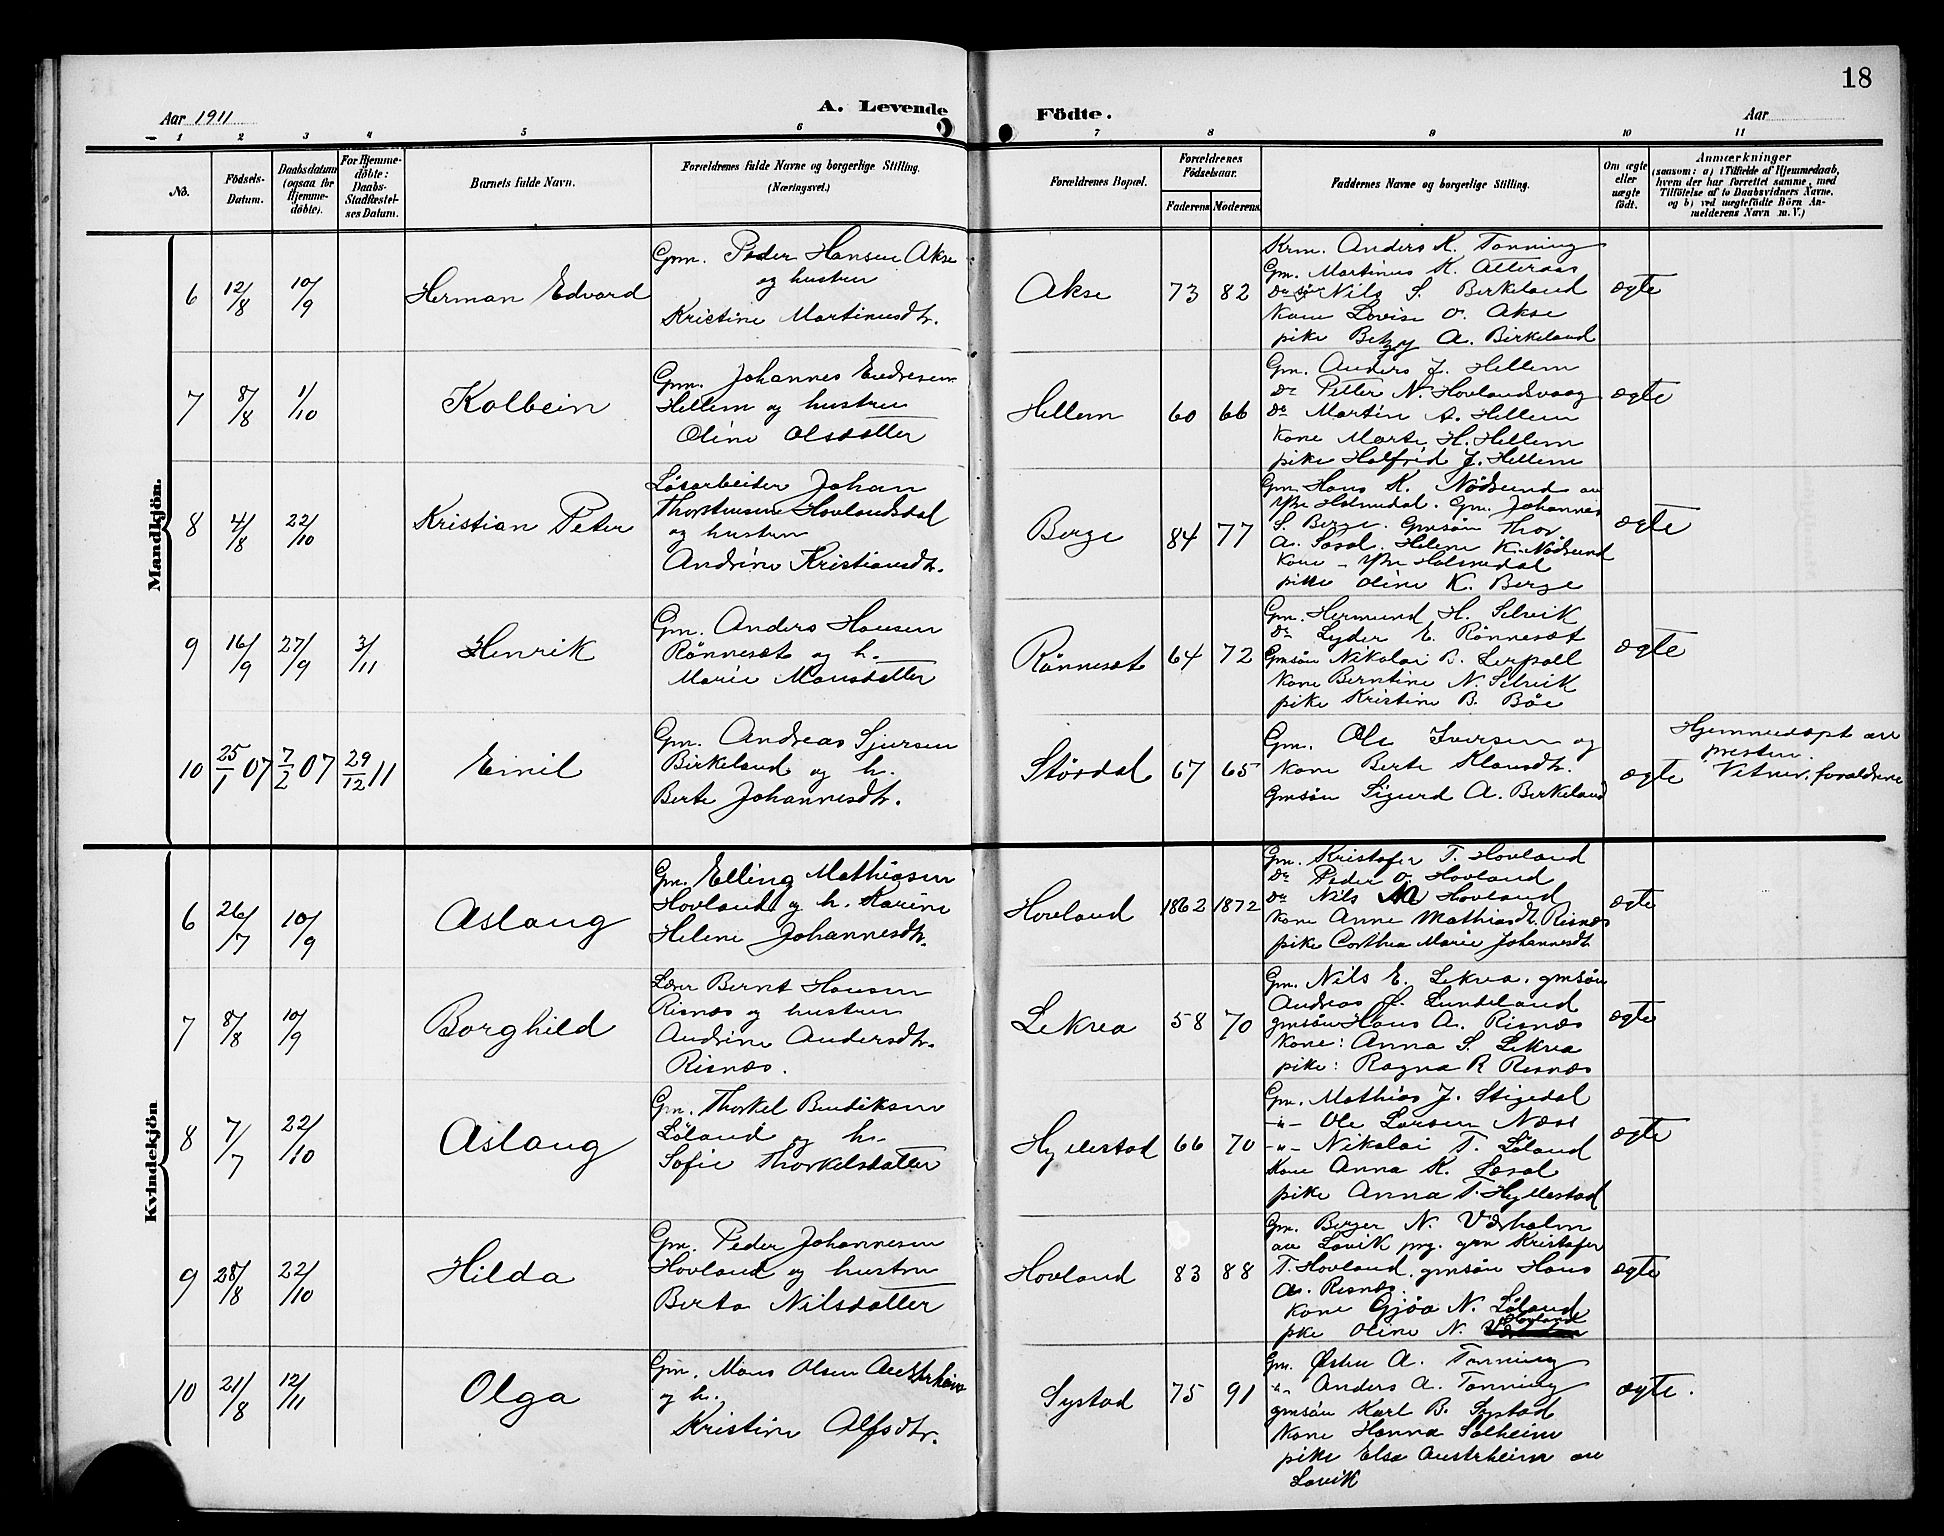 18
Aar 1911
A. Levende
Födte.
Aar
1 2 3 4 5 6 7 8 9 10 11
No.
Födsels-
Datum.
Daabsdatum
(ogsaa for
Hjemme-
döbte).
For Hjemme-
döbte:
Daabs-
Stadfæstel-
ses Datum.
Barnets fulde Navn.
Forældrenes fulde Navne og borgerlige Stilling.
(Næringsvei.)
Forældrenes Bopæl.
Forældrenes
Födselsaar.
Faderens Moderens
Faddernes Navne og borgerlige Stilling.
Om ægte
eller
uægte
födt.
Anmærkninger
(saasom: a) i Tilfælde af Hjemmedaab,
hvem der har forrettet samme, med
Tilföielse af to Daabsvidners Navne,
og b) ved uægtefödte Börn An-
melderens Navn m. V.)
Mandkjön.
6 12/8 10/9 Herman Edvard
Gm. Peder Hansen Akse
og hustru
Kristine Martinusdtr.
Akse 73 82
Krm. Anders K. Tonning
Gm. Martinus K. Atteraas
do søn Nils S. Birkeland
Kone Lovise O. Akse
pike Betzy A. Birkeland
ægte
7 8/8 1/10 Kolbein
Gm. Johannes Endresen
Hellem og hustru
Oline Olsdatter
Hellem 60 66
Gm. Anders J. Hellem
do Petter N. Hovlandsvaag
do Martin A. Hellem
Kone Marte H. Hellem
pike Halfrid J. Hellem
ægte
8 4/8 22/10 Kristian Peter
Løsarbeider Johan
Thorstensen Hovlandsdal
og hustru
Andrine Kristiansdtr.
Berge 84 77
Gm. Hans K. Nødsund av
Ytre Holmedal. Gm. Johannes
S. Berge. Gmsøn Thor
A. Sæsol. Helene K. Nødsund
Kone - Ytre Holmedal
pike Oline K. Berge
ægte
9 16/9 27/9 3/11 Henrik
Gm. Anders Hansen
Rønneset og h.
Marie Monsdatter
Rønneset 64 72
Gm. Hermund H. Selvik
do Lyder E. Rønneset
Gmsøn Nikolai B. Lerpoll
Kone Berntine N. Selvik
pike Kristine B. Bøe
ægte
10 25/1 07 7/2 07 29/12 11 Emil
Gm. Andreas Sjursen
Birkeland og h.
Berte Johannesdtr.
Størdal 67 65
Gm. Ole Iversen og
Kone Berte Klausdtr.
Gmsøn Sigurd A. Birkeland
ægte
Hjemmedøpt av
presten.
Vitner, forældrene
Kvindekjön
6 26/7 10/9 Aslaug
Gm. Elling Mathiasen
Hovland og h. Karine
Helene Johannesdtr.
Hovland 1862 1872
Gm. Kristofer T. Hovland
do Peder O. Hovland
do Nils M Hovland
Kone Anne Mathiasdtr. Risnes
pike Corthea Marie Johannesdtr
ægte
7 8/8 10/9 Borghild
Lærer Bernt Hansen
Risnæs og hustru
Andrine Andersdtr.
Risnæs.
Lekrea 58 70
Gm. Nils E. Lekrea, gmsøn
Andreas L. Lundeland
gmsøn Hans A. Risnæs
Kone: Anna S. Lekrea
pike: Ragna R Risnæs
ægte
8 7/7 22/10 Aslaug
Gm. Thorkel Bendiksen
Løland og h.
Sofie Thorkelsdatter
Hyllestad 66 70
Gm. Mathias J. Stigedal
-"- Ole Larsen Næss
-"- Nikolai T. Løland
Kone Anna K. Sæsol
pike Anna T. Hyllestad
ægte
9 28/8 22/10 Hilda
Gm. Peder Johannesen
Hovland og hustru
Berta Nilsdatter
Hovland 83 88
Gm. Berger N. Værholm
av Lavik prg. gm Kristofer
T. Hovland, gmsøn Hans
A. Risnæs.
Kone Gjøa N. Løland
pke Oline N. Hovland
ægte
10 21/8 12/11 Olga
Gm. Mons Olsen Austrheim
og h.
Kristine Alfsdtr.
Systad 75 91
Gm. Østen A. Tonning
-"- Anders A. Tonning
gmsøn Karl B. Systad
Kone Hanna Solheim
pike Elsa Austrheim av
Lavik
ægte.